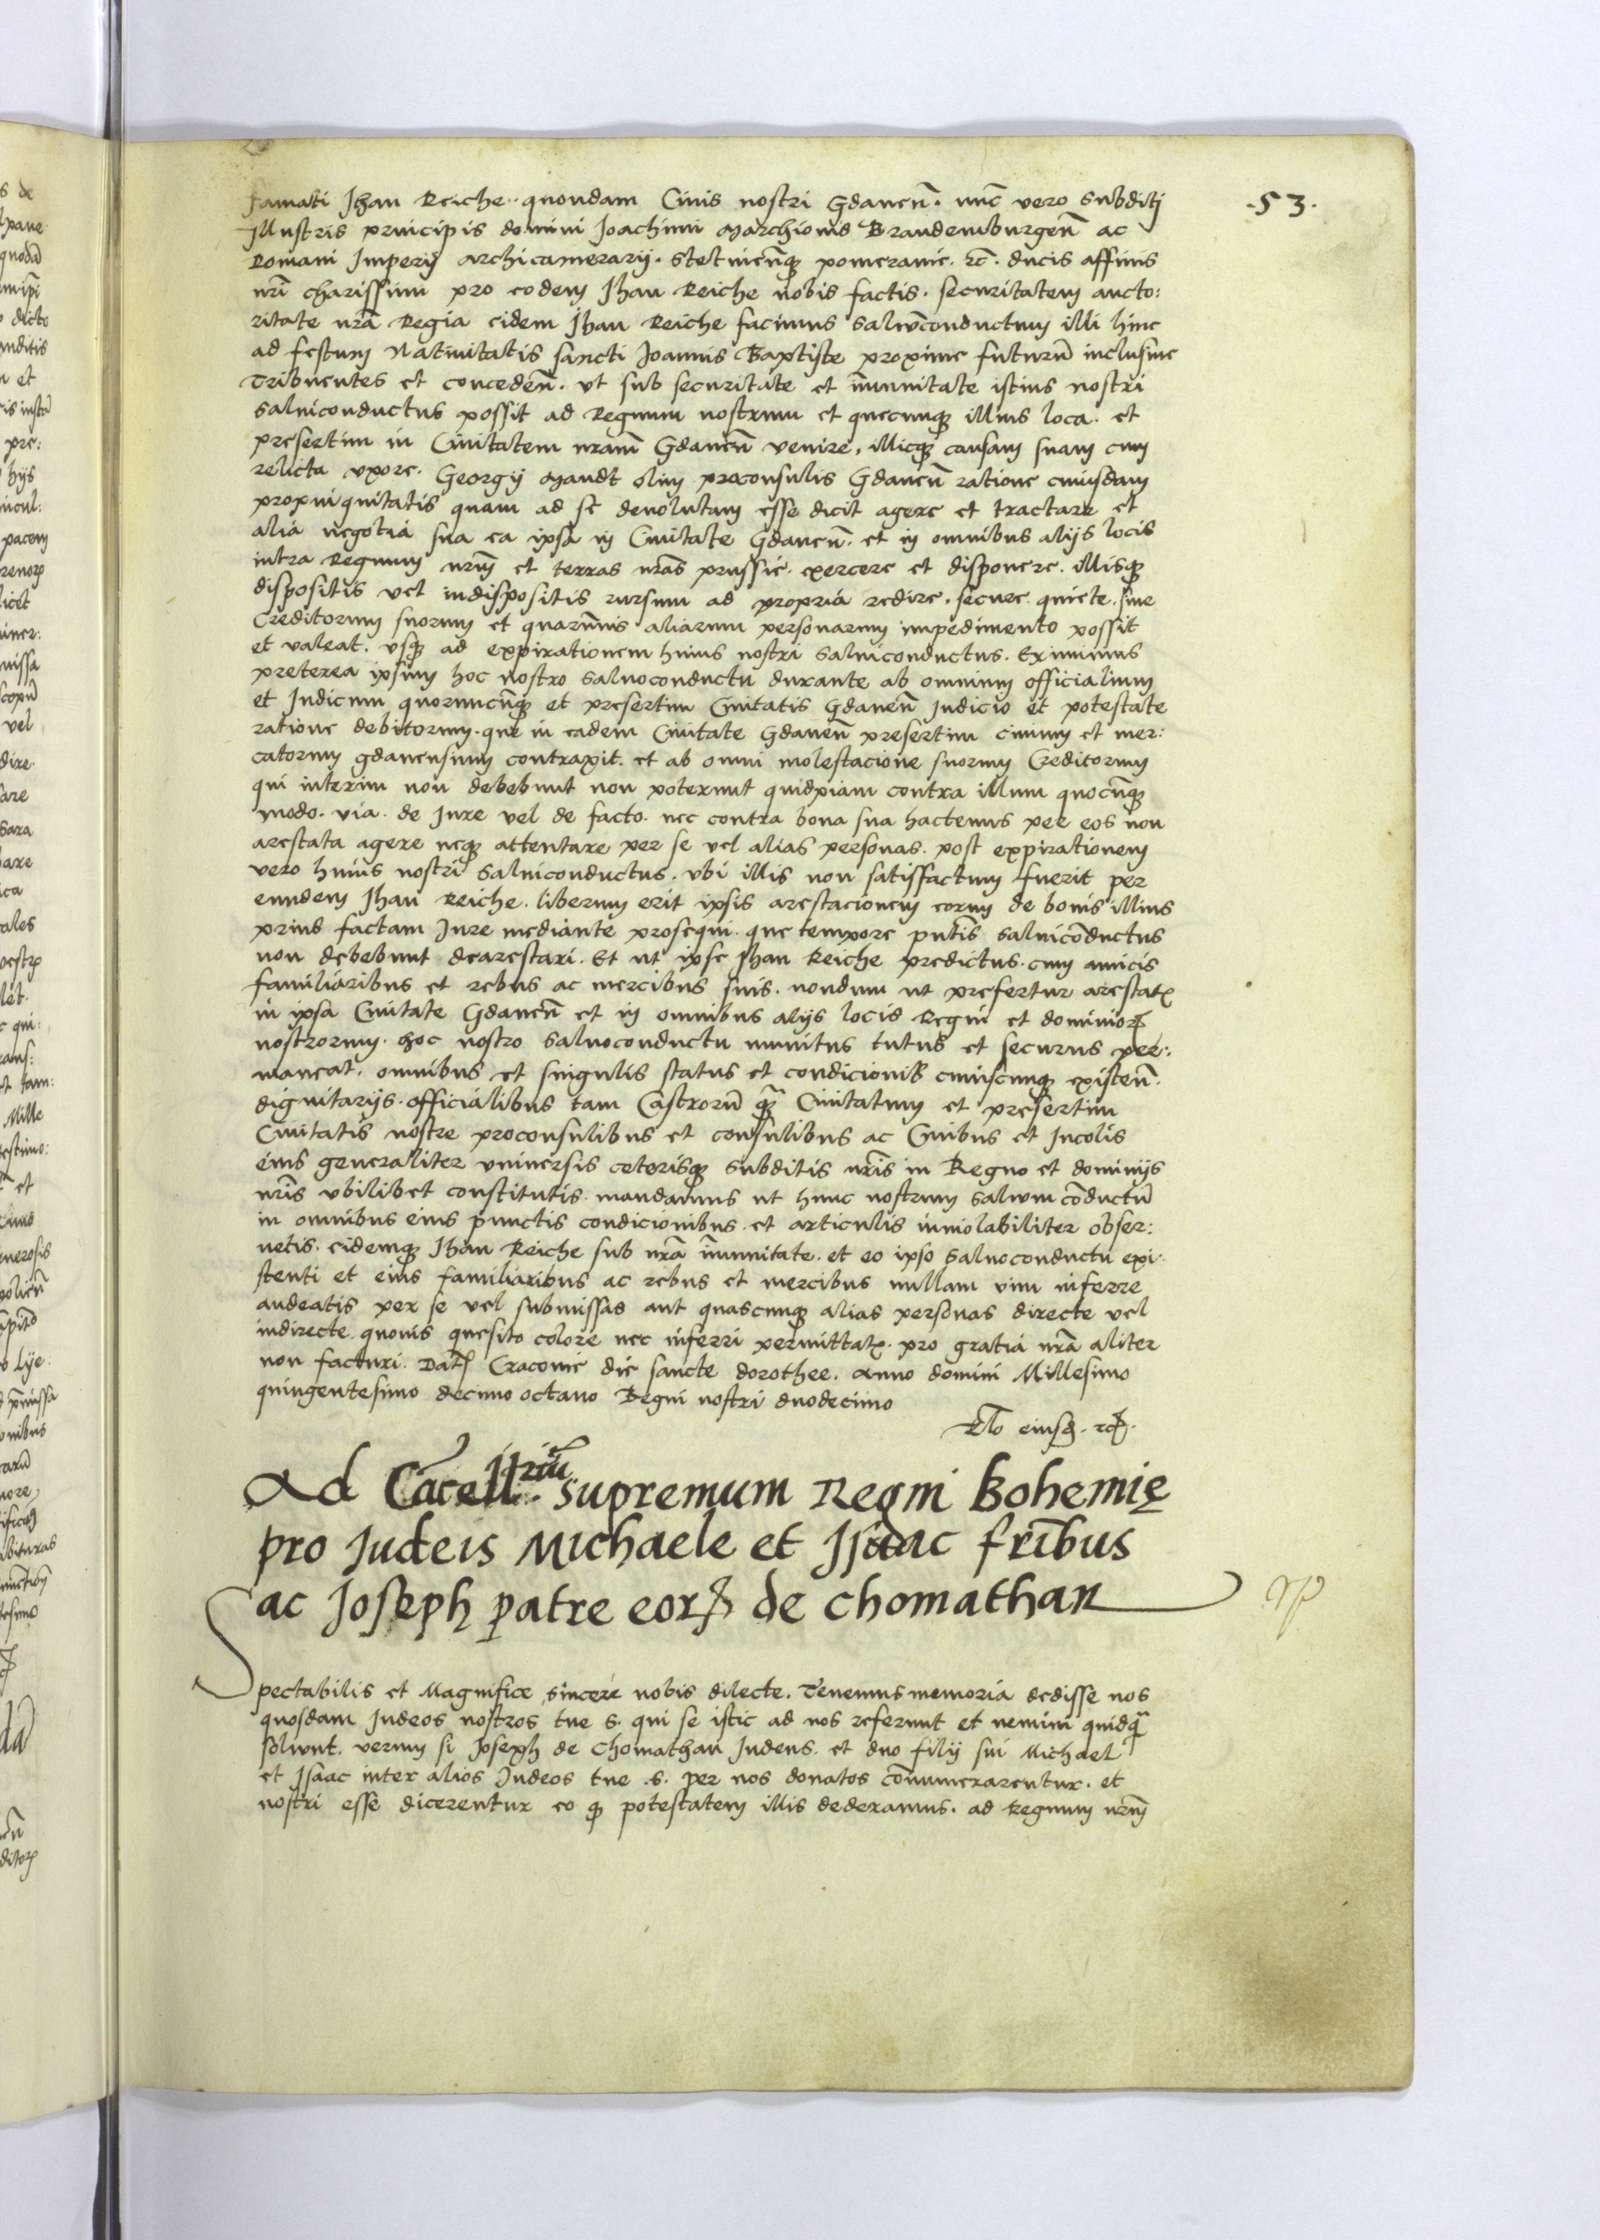 .53.
famati Jhan Reiche quondam Civis nostri Gdaneñ. nuc̄ vero subditj
Illustris principis domini Joachimi Marchionis Brandemburgeñ ac
Romani Imperij archicamerarij. Stetinencq̃ pomeranie. rc̃. ducis affinis
nr̃i charissimi pro eodem Jhan Reiche nobis factis. securitatem aucto:
ritate nr̃a Regia eidem Jhan Reiche facimus salvūconductum illi hinc
ad festum Nativitatis sancti Joannis Baptiste proxime futurū inclusive
Tribuentes et concedeñ. ut sub securitate et īmunitate istius nostri
salviconductus possit ad Regnum nostrum et quecunqꝫ illius loca. et
presertim in Civitatem nram̄ Gdaneñ venire, illicqꝫ causam suam cum
relicta uxore. Georgij Mandt olim proconsulis Gdaneñ ratione cuiusdam
propinquitatis quam ad se devolutam esse dicit agere et tractare et
alia negotia sua ea ipsa in Civitate Gdaneñ. et in omnibus alijs locis
intra Regnum nrm̄ et terras nrās prussie. exercere et disponere. illisqꝫ
dispositis vel indispositis rursum ad propria redire. secure. quiete. sine
Creditorum suorum et quarumvis aliarum personarum impedimento possit
et valeat. usqꝫ ad expirationem huius nostri salviconductus. Eximimus
preterea ipsum hoc nostro salvoconductu durante ab omnium officialium
et Judicum quorumcūqꝫ et presertim Civitatis Gdaneñ Judicio et potestate
ratione debitorum. que in eadem Civitate Gdaneñ presertim civium et mer:
catorum gdanensium contraxit. et ab omni molestacione suorum Creditorum
qui interim non debebunt non poterunt quidpiam contra illum quocūqꝫ
modo. via. de Jure vel de facto. nec contra bona sua hactenus per eos non
arestata agere neqꝫ attentare per se vel alias personas. post expirationem
vero huius nostri salviconductus. ubi illis non satisfactum fuerit per
eundem Jhan Reiche. liberum erit ipsis arestacionem eorum de bonis illius
prius factam Jure mediante prosequi. que tempore pn̄tis salvicōductus
non debebunt dearestari. Et ut ipse Jhan Reiche predictus. cum amicis
familiaribus et rebus ac mercibus suis. nondum ut prefertur arestatꝭ
in ipsa Civitate Gdaneñ et in omnibus alijs locis Regni et dominioꝝ
nostrorum. hoc nostro salvoconductu munitus tutus et securus per:
maneat. omnibus et singulis status et condicionis cuiuscunqꝫ existeñ.
dignitarijs. officialibus tam Castrorū qꝫ̄ Civitatum et presertim
Civitatis nostre proconsulibus et consulibus ac Civibus et Incolis
eius generaliter universis ceterisqꝫ subditis nrīs in Regno et dominijs
nrīs ubilibet constitutis. mandamus ut hunc nostrum salvum cōductū
in omnibus eius punctis condicionibus. et articulis inviolabiliter obser:
vetis. eidemqꝫ Jhan Reiche sub nrā īmunitate. et eo ipso salvoconductu exi:
stenti et eius familiaribus ac rebus et mercibus nullam vim inferre
audeatis per se vel submissas aut quascunqꝫ alias personas directe vel
indirecte. quovis quesito colore nec inferri permittatꝭ. pro gratia nrā aliter
non facturi. Datꝭ Cracovie die sancte dorothee. anno domini Millesimo
quingentesimo decimo octavo Regni nostri duodecimo
Rlo eiusꝗ. rcꝭ.
Ad Cācell:riū supremum Regni Bohemię
pro Judeis Michaele et Isaac frībus
ac Joseph patre eoꝝ de Chomathan
Spectabilis et Magnifice sincere nobis dilecte. Tenemus memoria dedisse nos
quosdam Judeos nostros tue s. qui se istic ad nos referunt et nemini quidqꝫ̄
solvunt. verum si Joseph de Chomathan Judeus. et duo filij sui Michael
et Isaac inter alios Judeos tue .s. per nos donatos cōnumerarentur. et
nostri esse dicerentur eo qꝫ potestatem illis dederamus. ad Regnum nrm̄